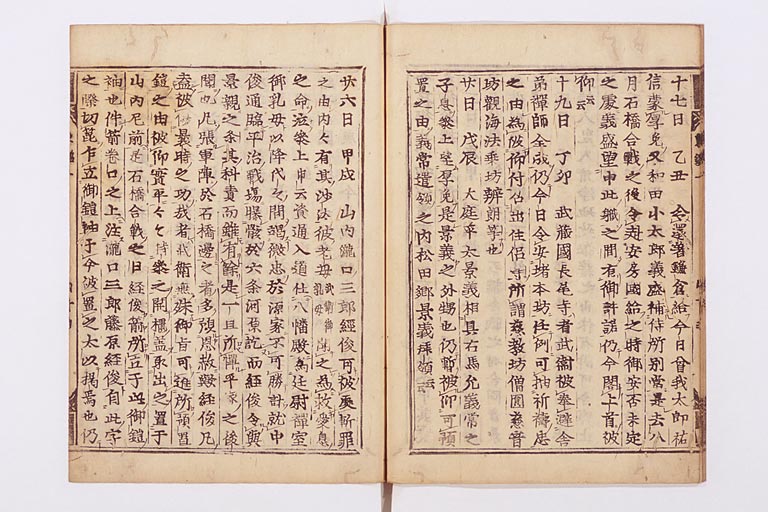 十七日 乙丑 令還著鎌倉給今日曽我太郎祐
信蒙厚免又和田小太郎義盛補侍所別當是去八
月石橋合戰之後令赴安房國給之時御安否未定
之處義盛望申此職之間有御許諾仍今閣上首被
仰云云
十九日 丁卯 武藏國長尾寺者武衛被奉避舍
弟禪師全成仍今日令安堵本坊任例可抽祈禱忠
之由為被仰付召出住侶等所謂慈教坊僧圓慈音
坊觀海法乗坊辨朗等也
廿日 戊辰 大庭平太景義相具右馬允義常之
子息參上望厚免是景義之外甥也仍暫被仰可預
置之由義常遺領之内松田郷景義拜領云云
廿六日 甲戌 山内瀧口三郎經俊可被處斬罪
之由内々有其沙汰彼老母武衛御乳母聞之為救愛息
之命泣參上申云資通入道仕八幡殿為廷尉禪室
御乳母以降代々之間竭微忠於源家不可勝計就中
俊通臨平治戰塲曝骸於六條河原訖而經俊令與
景親之条其科責而雖有餘是一旦所憚平家之後
聞也凡張軍陣於石橋邊之者多預恩赦歟經俊凡
盍被優曩時之功哉者武衛無殊御旨可進所預置
鎧之由被仰實平々々持參之開櫃蓋取出之置于
山内尼前是石橋合戰之日經俊箭所立于此御鎧
袖也件箭巻口之上注瀧口三郎藤原經俊自此字
之際切篦乍立御鎧袖于今被置之太以掲焉也仍